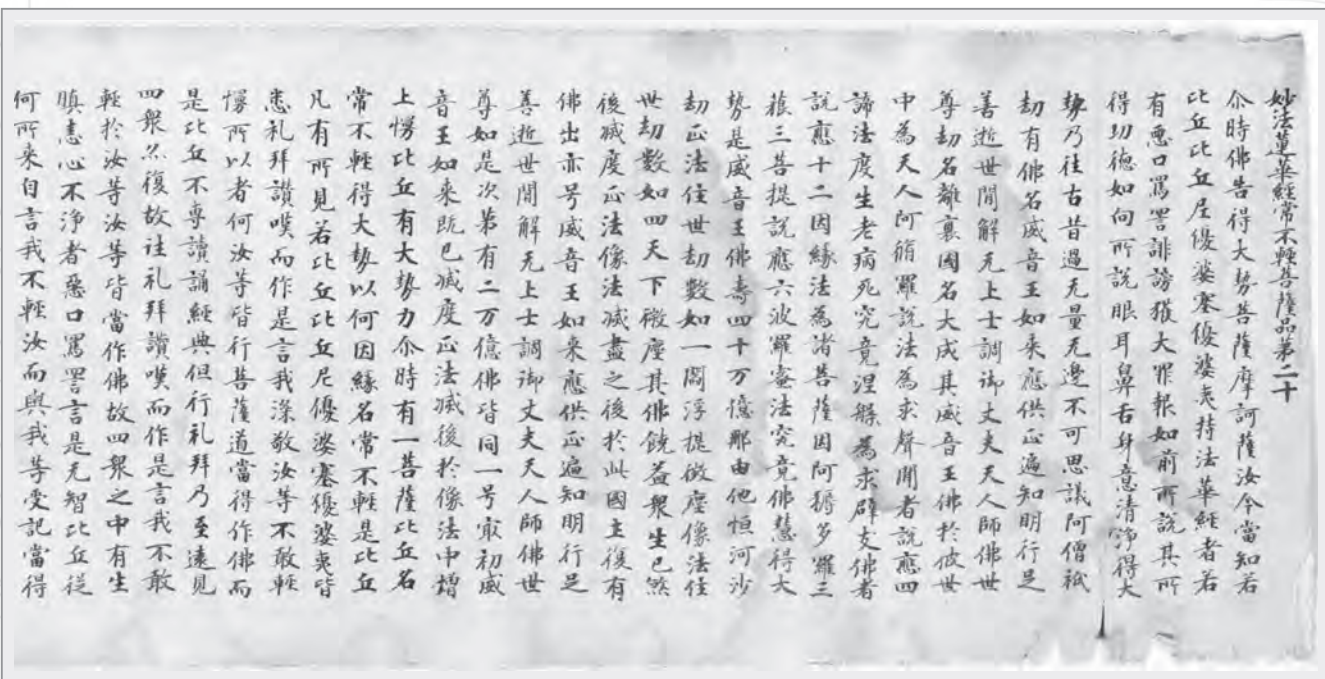 妙法蓮華經常不輕菩薩品第二十
尒時佛告得大勢菩薩摩訶薩汝今當知若
比丘比丘尼優婆塞優婆夷持法華經者若
有惡口罵詈誹謗獲大罪報如前所說其所
得功德如向所說眼耳鼻舌身意清淨得大
勢乃往古昔過无量无邊不可思議阿僧祇
劫有佛名威音王如来應供正遍知明行足
善逝世間解无上士調御丈夫天人師佛世
尊劫名離衰國名大成其威音王佛於彼世
中為天人阿脩羅說法為求聲聞者說應四
諦法度生老病死究竟涅槃為求辟支佛者
說應十二因緣法為諸菩薩因阿耨多羅三
藐三菩提說應六波羅蜜法究竟佛慧得大
勢是威音王佛壽四十万億那由他恒河沙
劫正法住世劫數如一閻浮提微塵像法住
世劫數如四天下微塵其佛饒益衆生已然
後滅度正法像法滅盡之後於此國土復有
佛出亦号威音王如来應供正遍知明行足
善逝世間解无上士調御丈夫天人師佛世
尊如是次第有二万億佛皆同一号㝡初威
音王如来既已滅度正法滅後於像法中增
上慢比丘有大勢力尒時有一菩薩比丘名
常不輕得大勢以何因緣名常不輕是比丘
凡有所見若比丘比丘尼優婆塞優婆夷皆
悉礼拜讃嘆而作是言我深敬汝等不敢輕
慢所以者何汝等皆行菩薩道當得作佛而
是比丘不專讀誦經典但行礼拜乃至遠見
四衆亦復故往礼拜讃嘆而作是言我不敢
輕於汝等汝等皆當作佛故四衆之中有生
瞋恚心不淨者惡口罵詈言是无智比丘從
何所来自言我不輕汝而與我等受記當得